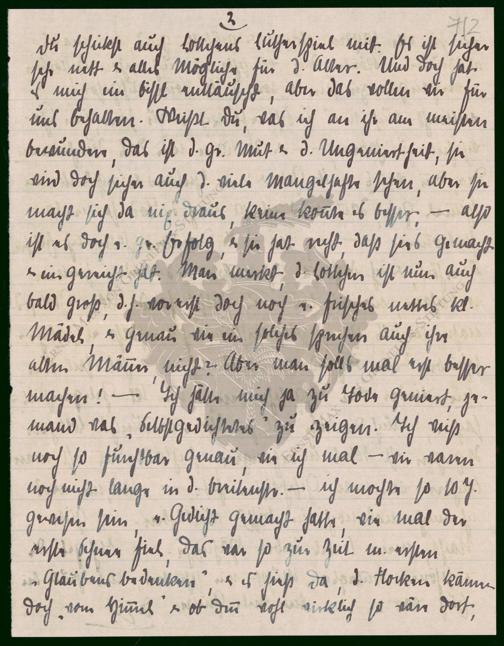 2
7/2
Du schickst auch Lottchens Lutherspiel mit. Es ist sicher
sehr nett u. alles Mögliche für d. Alter. Und doch hat
es mich ein bissl enttäuscht, aber das wollen wir für
uns behalten. Weißt du, was ich an ihr am meisten
bewundere, das ist d. gr. Mut u. d. Ungeniertheit, sie
wird doch sicher auch d. viele Mangelhafte sehen, aber sie
macht sich da nix draus, keine konnte es besser, — also
ist es doch e. gr. Erfolg, u. sie hat recht daß sies gemacht
u. eingereicht hat. Man merkt, d. Lottchen ist nun auch
bald groß, d. h. vorerst doch noch e. frisches nettes kl.
Mädel, u. genau wie ein solches sprechen auch ihre
alten Männer, nicht? Aber man solls mal erst besser
machen! — Ich hätte mich ja zu Tode geniert, je-
mand was „Selbstgedichtetes" zu zeigen. Ich weiß
noch so furchtbar genau, wie ich mal — wir waren
noch nicht lange in d. Breitenstr. — ich mochte so 10 J.
gewesen sein, e. Gedicht gemacht hatte, wie mal der
erste Schnee fiel, das war so zur Zeit m. ersten
„Glaubensbedenken", u. es hieß da, d. Flocken kämen
doch „vom Himmel" u. ob denn wohl wirklich so wäre dort,